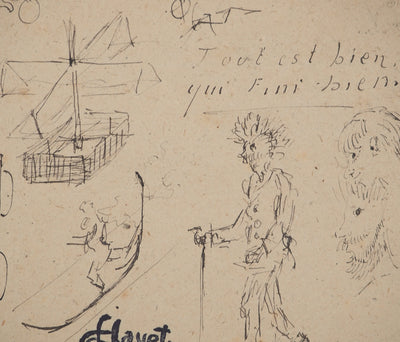 Tout est bien
qui Fini-bien.
Hayet